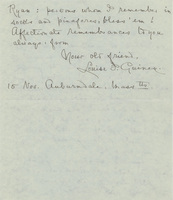 Ryan: persons whom I remember in
socks and pinafores, bless 'em!
Affectionate remembrances to you
always, from
Your old friend,
Louise I. Guiney.
15 Nov. Auburndale, Mass